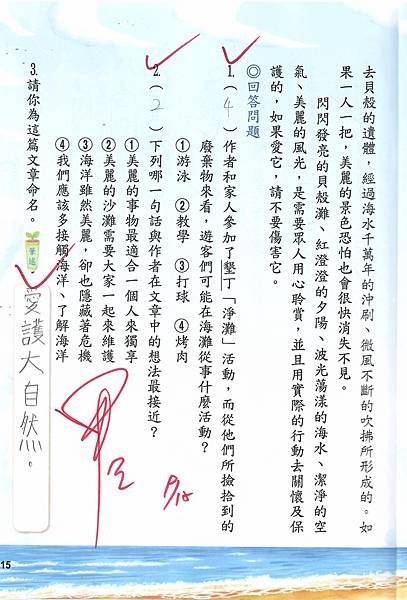 去貝殼的遺體，經過海水千萬年的沖刷、微風不斷的吹拂所形成的。如
果一人一把，美麗的景色恐怕也會很快消失不見。
閃閃發亮的貝殼灘、紅澄澄的夕陽、波光蕩漾的海水、潔淨的空
氣、美麗的風光，是需要眾人用心聆賞，並且用實際的行動去關懷及保
護的，如果愛它，請不要傷害它。
◎回答問題
1.（4）作者和家人參加了墾丁「淨灘」活動，而從他們所撿拾到的
廢棄物來看，遊客們可能在海灘從事什麼活動？
①游泳 ②教學 ③打球 ④烤肉
2.（2）下列哪一句話與作者在文章中的想法最接近？
①美麗的事物最適合一個人來獨享
②美麗的沙灘需要大家一起來維護
③海洋雖然美麗，卻也隱藏著危機
④我們應該多接觸海洋、了解海洋
3.請你為這篇文章命名。
愛護大自然。
15